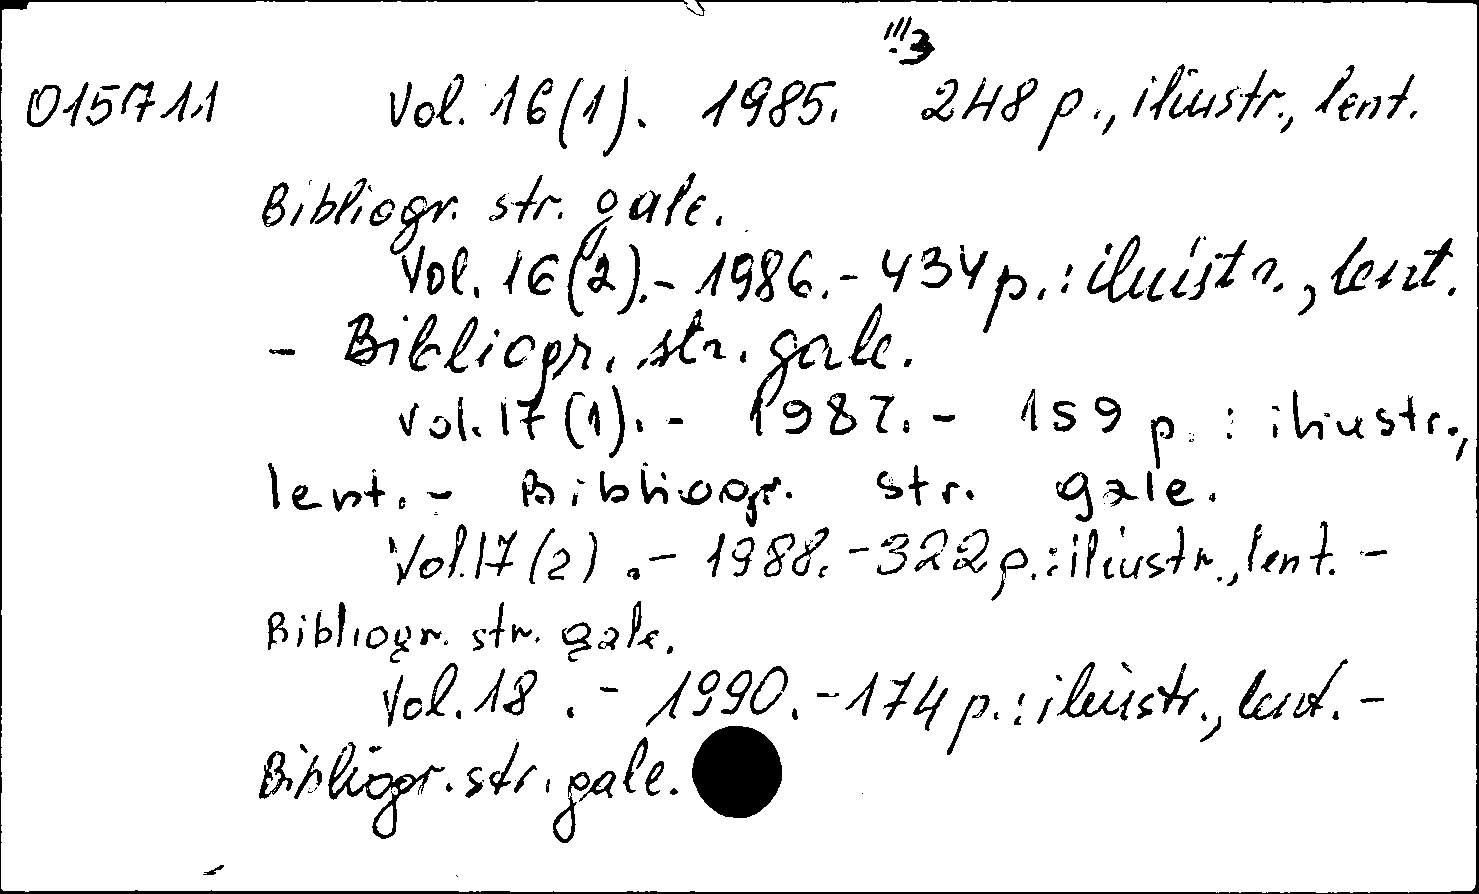 '''3
015711 Vol. 16(1). 1985. 248 p., iliustr., lent.
Bibliogr. str. gale.
Vol. 16(2).- 1986.- 434 p.: iliustr., lent.
- Bibliogr. str. gale.
Vol. 17(1).- 1987.- 159 p.: iliustr.,
lent.- Bibliogr. str. gale.
Vol. 17(2).- 1988.- 322 p.: iliustr., lent.-
Bibliogr. str. gale.
Vol. 18.- 1990.- 174 p.: iliustr., lent.-
Bibliogr. str. gale.